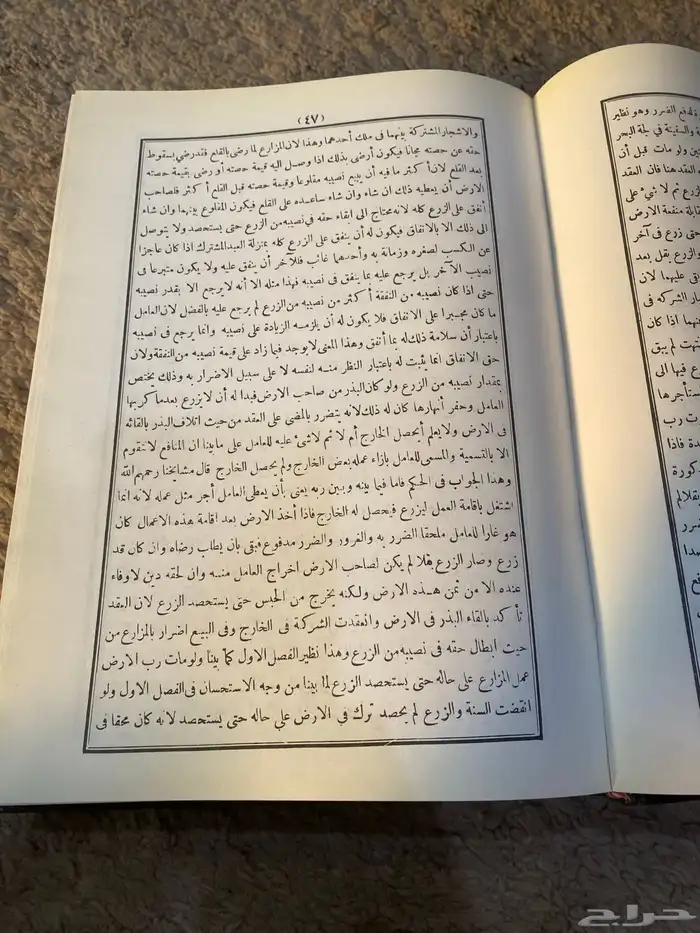 (٤٧)
والاشجار المشتركة بينهما في ملك أحدهما وهذا لان المزارع لما رضى بالقلع فقد رضى بسقوط
حقه عن حصته مجانا فيكون أرضى بذلك اذا وصل اليه قيمة حصته أو رضى بقيمة حصته
بعد القلع لان أكثر ما فيه أن يبيع نصيبه مقلوعا وقيمة حصته قبل القلع أكثر فلصاحب
الارض أن يعطيه ذلك ان شاء وان شاء ساعده على القلع فيكون المقلوع بينهما وان شاء
أنفق على الزرع كله لانه محتاج الى ابقاء حقه في نصيبه من الزرع حتى يستحصد ولا يتوصل
الى ذلك الا بالانفاق فيكون له أن ينفق على الزرع كله بمنزلة العبد المشترك اذا كان عاجزا
عن الكسب لصغره وزمانة به وأحدهما غائب فللآخر أن ينفق عليه ولا يكون متبرعا في
نصيب الآخر بل يرجع عليه بما ينفق في نصيبه فهذا مثله الا أنه لا يرجع الا بقدر نصيبه
حتى اذا كان نصيبه من النفقة أكثر من نصيبه من الزرع لم يرجع عليه بالفضل لان العامل
ما كان مجبرا على الانفاق فلا يكون له أن يلزمه الزيادة على نصيبه وانما يرجع في نصيبه
باعتبار أن سلامة ذلك له بما أنفق وهذا المعنى لا يوجد فيما زاد على قيمة نصيبه من النفقة ولان
حق الانفاق انما يثبت له باعتبار النظر منه لنفسه لا على سبيل الاضرار به وذلك يختص
بمقدار نصيبه من الزرع ولو كان البذر من صاحب الارض فبدا له أن لا يزرع بعد ما كربها
العامل وحفر أنهارها كان له ذلك لانه يتضرر بالمضى على العقد من حيث اتلاف البذر بالقائه
في الارض ولا يعلم أيحصل الخارج أم لا ثم لا شئ عليه للعامل على ما بينا ان المنافع لا تتقوم
الا بالتسمية والمسمى للعامل بازاء عمله بعض الخارج ولم يحصل الخارج قال مشايخنا رحمهم الله
وهذا الجواب في الحكم فاما فيما بينه وبين ربه يعنى بأن يعطى العامل أجر مثل عمله لانه انما
اشتغل باقامة العمل ليزرع فيحصل له الخارج فاذا أخذ الارض بعد اقامة هذه الاعمال كان
هو غارا للعامل ملحقا الضرر به والغرور والضرر مدفوع فيفتى بان يطلب رضاه وان كان قد
زرع وصار الزرع بقلا لم يكن لصاحب الارض اخراج العامل منه وان لحقه دين لا وفاء
عنده الا من ثمن هذه الارض ولكنه يخرج من الحبس حتى يستحصد الزرع لان العقد
تأكد بالقاء البذر في الارض وانعقدت الشركة في الخارج وفى البيع اضرار بالمزارع من
حيث ابطال حقه في نصيبه من الزرع وهذا نظير الفصل الاول كما بينا ولو مات رب الارض
عمل المزارع على حاله حتى يستحصد الزرع لما بينا من وجه الاستحسان في الفصل الاول ولو
انقضت السنة والزرع لم يحصد ترك في الارض على حاله حتى يستحصد لانه كان محقا فى
لدفع الضرر وهو نظير
والسفينة في لجة البحر
ولو مات قبل أن
العقد هنا فان العقد
الزرع ثم لا شئ على
قابلة منفعة الارض
حتى زرع في آخر
والزرع بقل بعد
عليهما لان
الشركة في
بينهما اذا كان
انتهت لم يبق
فيها الى
يستأجرها
رب
فاذا
حراج